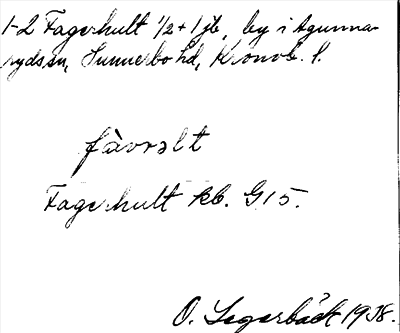 1-2 Fagerhult 1/2 + 1 jb, by i Agunna-
rydssn, Sunnerbo hd, Kronob. l.
fàvrəlt
Fagerhult kb. G15.
O. Segerbäck 1938.